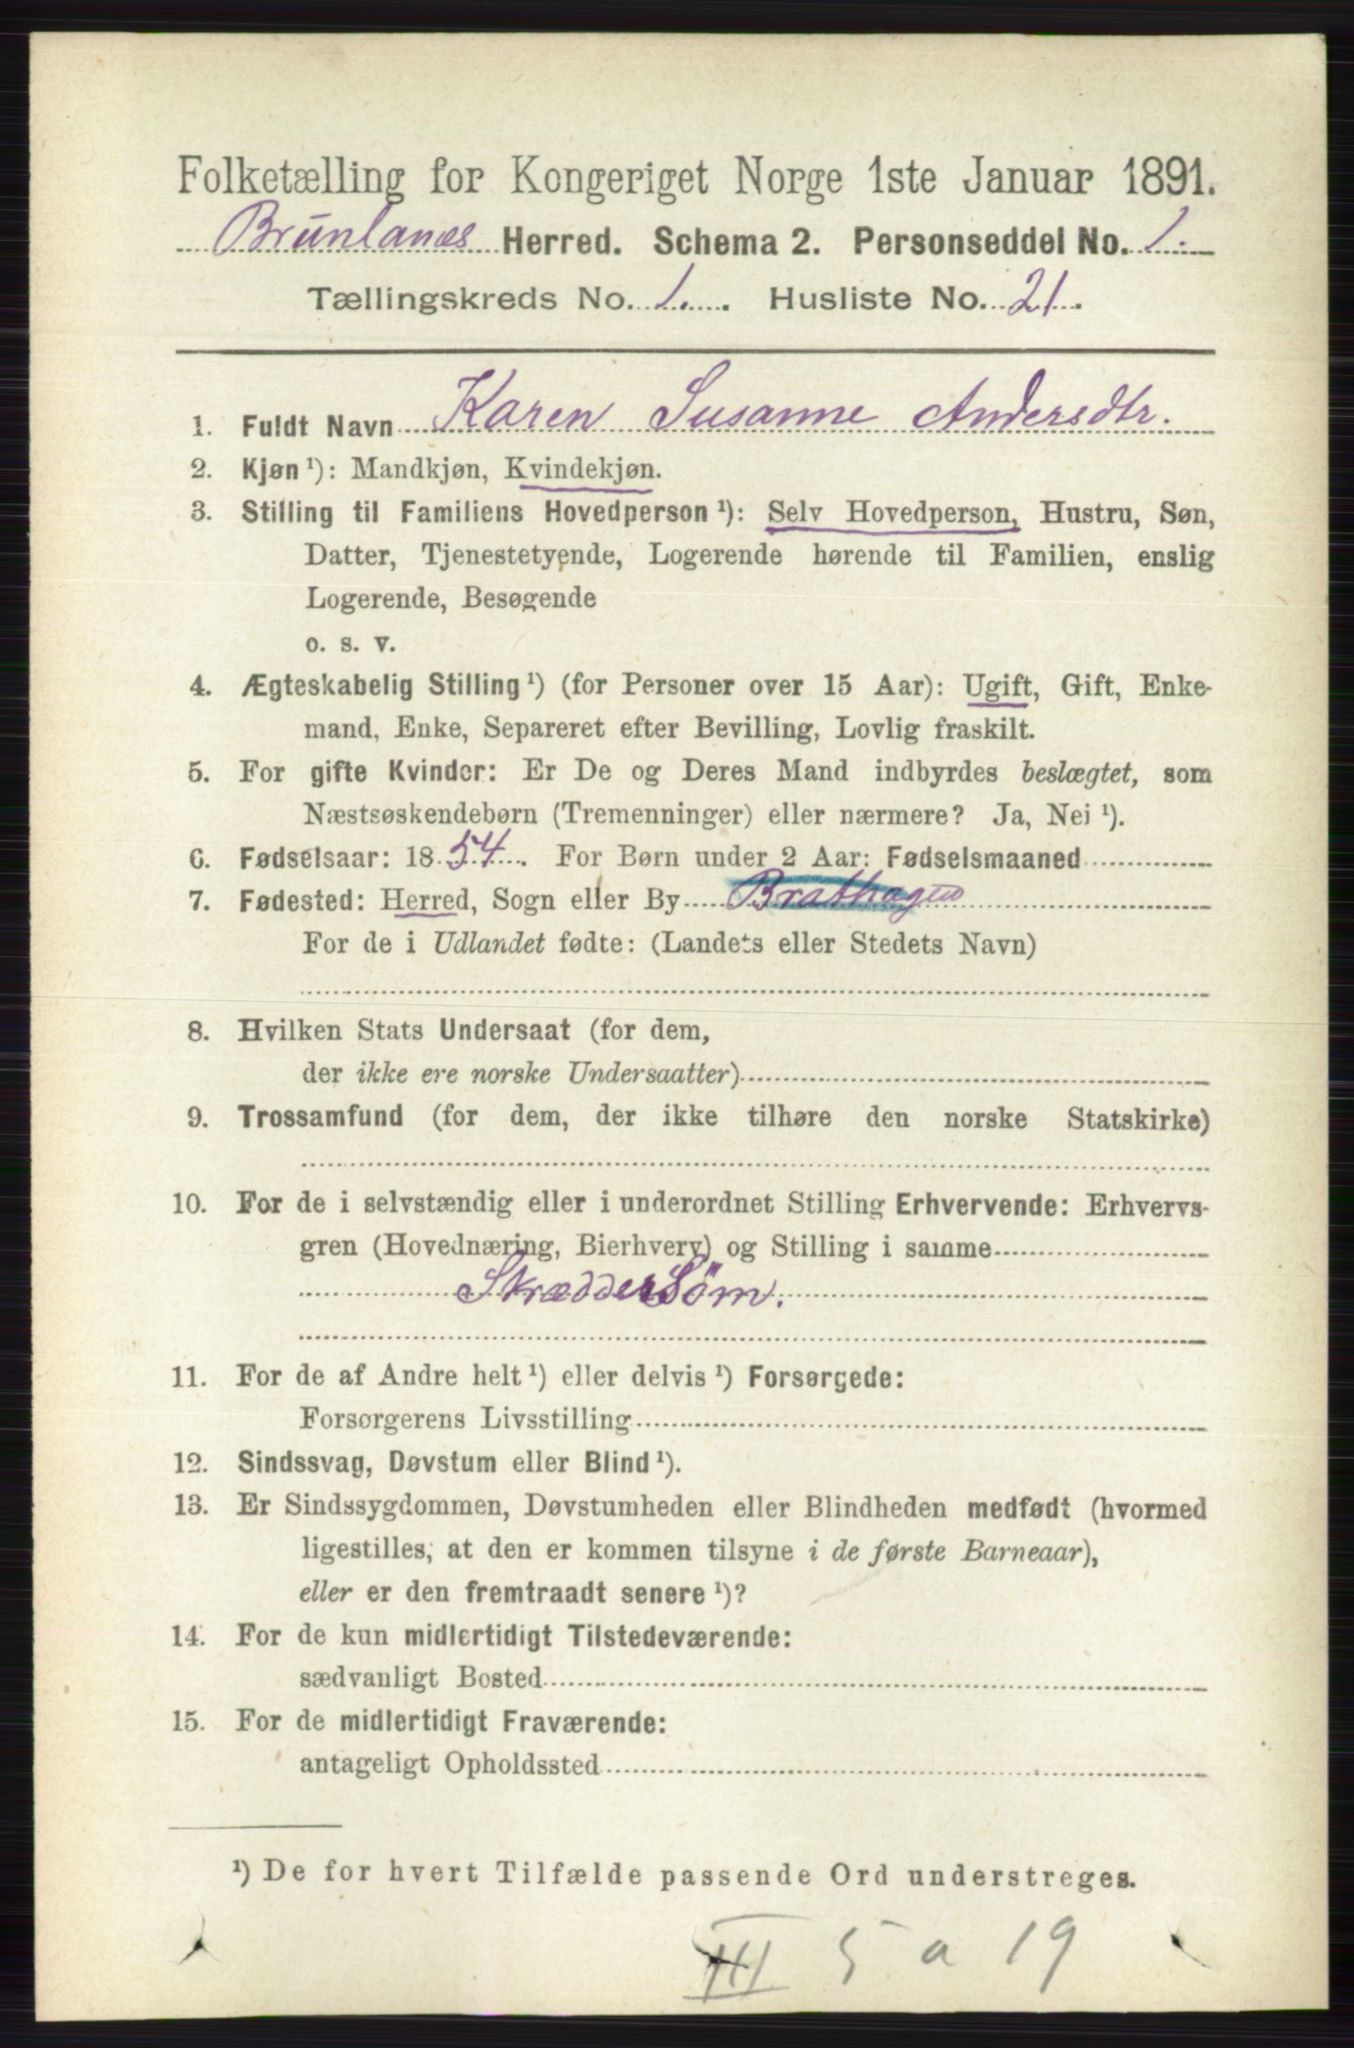 Folketælling for Kongeriget Norge 1ste Januar 1891.
Brunlanæs Herred. Schema 2. Personseddel No. 1.
Tællingskreds No. 1. Husliste No. 21.
1. Fuldt Navn Karen Susanne Andersdtr.
2. Kjøn ¹): Mandkjøn, Kvindekjøn.
3. Stilling til Familiens Hovedperson ¹): Selv Hovedperson, Hustru, Søn,
Datter, Tjenestetyende, Logerende hørende til Familien, enslig
Logerende, Besøgende
o. s. v.
4. Ægteskabelig Stilling ¹) (for Personer over 15 Aar): Ugift, Gift, Enke-
mand, Enke, Separeret efter Bevilling, Lovlig fraskilt.
5. For gifte Kvinder: Er De og Deres Mand indbyrdes beslægtet, som
Næstsøskendebørn (Tremenninger) eller nærmere? Ja, Nei ¹).
6. Fødselsaar: 1854. For Børn under 2 Aar: Fødselsmaaned
7. Fødested: Herred, Sogn eller By Brathagen
For de i Udlandet fødte: (Landets eller Stedets Navn)
8. Hvilken Stats Undersaat (for dem,
der ikke ere norske Undersaatter)
9. Trossamfund (for dem, der ikke tilhøre den norske Statskirke)
10. For de i selvstændig eller i underordnet Stilling Erhvervende: Erhvervs-
gren (Hovednæring, Bierhverv) og Stilling i samme
SkrædderSöm.
11. For de af Andre helt ¹) eller delvis ¹) Forsørgede:
Forsørgerens Livsstilling
12. Sindssvag, Døvstum eller Blind ¹).
13. Er Sindssygdommen, Døvstumheden eller Blindheden medfødt (hvormed
ligestilles, at den er kommen tilsyne i de første Barneaar),
eller er den fremtraadt senere ¹)?
14. For de kun midlertidigt Tilstedeværende:
sædvanligt Bosted
15. For de midlertidigt Fraværende:
antageligt Opholdssted
¹) De for hvert Tilfælde passende Ord understreges.
III 5 a 19